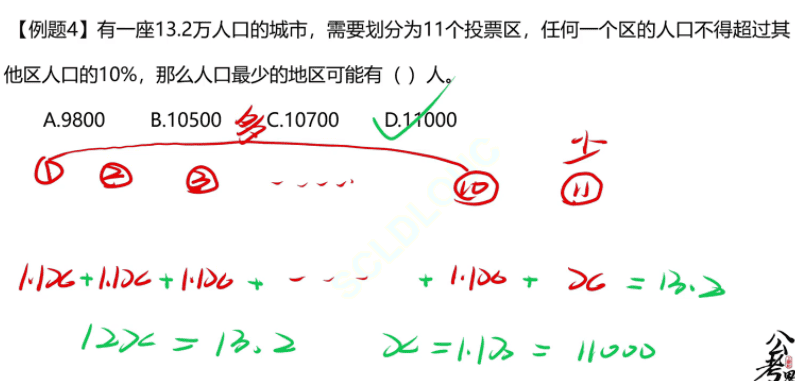 【例题4】有一座13.2万人口的城市，需要划分为11个投票区，任何一个区的人口不得超过其
他区人口的10%，那么人口最少的地区可能有（ ）人。
A.9800 B.10500 C.10700 D.11000
多
① ② ③ ---- ⑩ 小 ⑪
1.1x+1.1x+1.1x + ---- + 1.1x + x = 13.2
12x = 13.2 x = 1.1万 = 11000
SCLDLGWC
公考